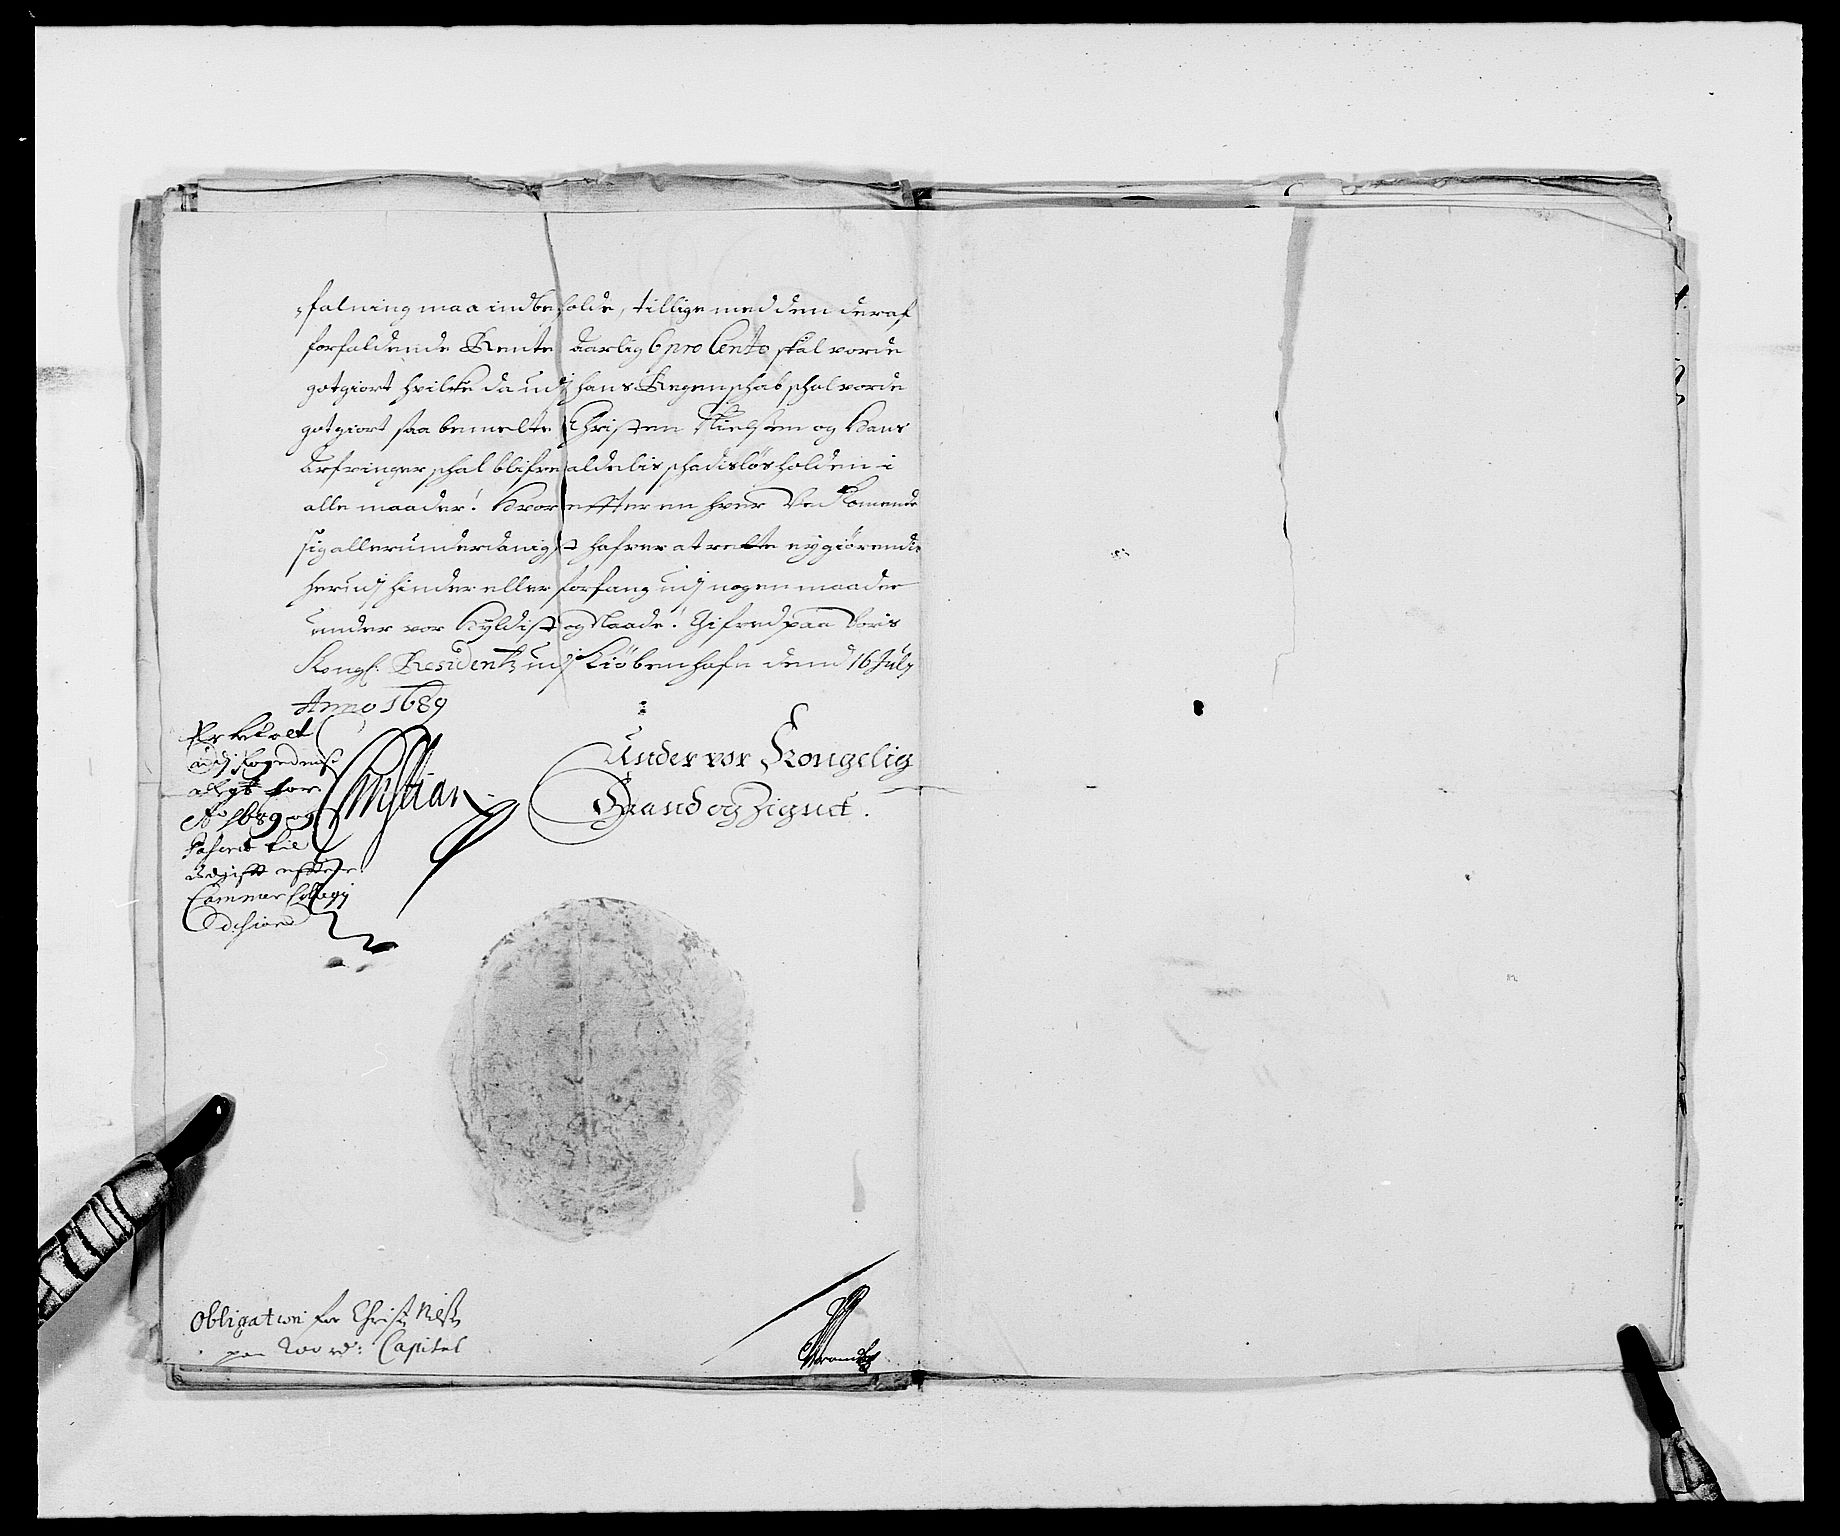 falning maa indbeholde, tillige med den deraf
forfaldende Rente aarlig 6 pro Cento skal vorde
gotgiort hvilke da udj hans Regenschab schal vorde
gotgiort saa bemelte Christen Nielssen og Hans
Arfvinger schal blifve aldelis schadisløs holden i
alle maader! Hvor effter en hver Ved Komende
sig allerunderdanigst hafver at rette ey giørendis
herudj hinder eller forfang udj nogen maader
under vor Hyldist og Naade! Gifved paa Voris
Kongl: Residentz udj Kiøbenhafn dend 16 July
Anno 1689
Under vor Kongelig
Haand og Zignet.
Christian
udj fogedens
for
Ao 1689 og
til
Udgift effter
Cammer Collegij
Obligation for Christ: Nielss:
paa 200 rd: Capital